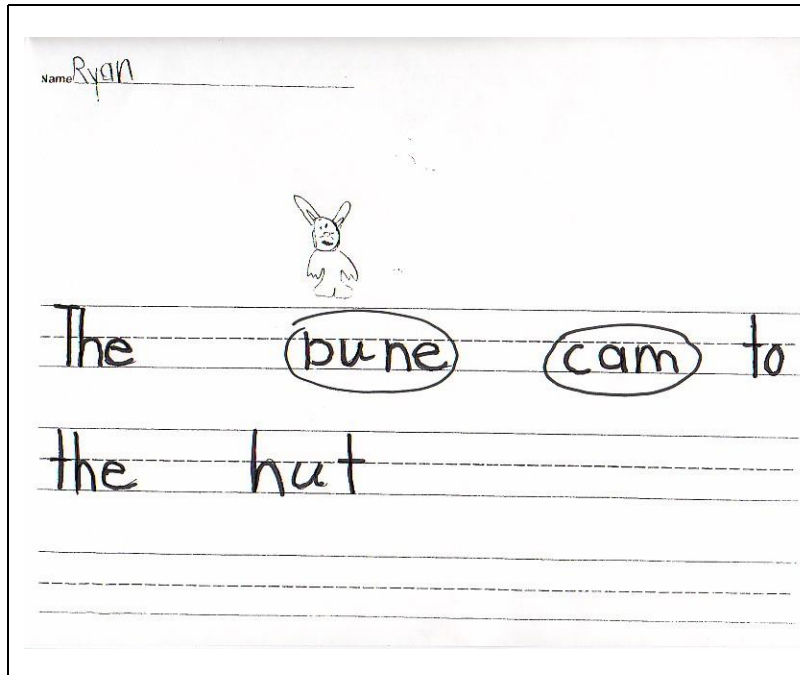 Name Ryan
The bune cam to
the hut